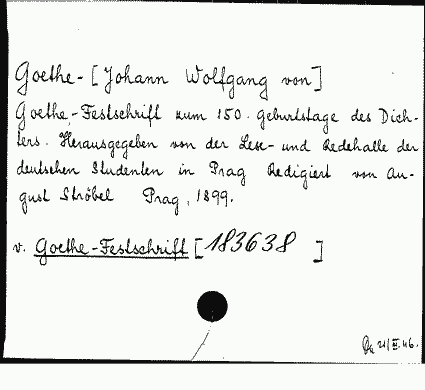 Goethe-[Johann Wolfgang von]
Goethe-Festschrift zum 150. Geburtstage des Dich-
ters. Herausgegeben von der Lese- und Redehalle der
deutschen Studenten in Prag Redigiert von Au-
gust Ströbel Prag, 1899.
v. Goethe-Festschrift [183638 ]
21/III.46.